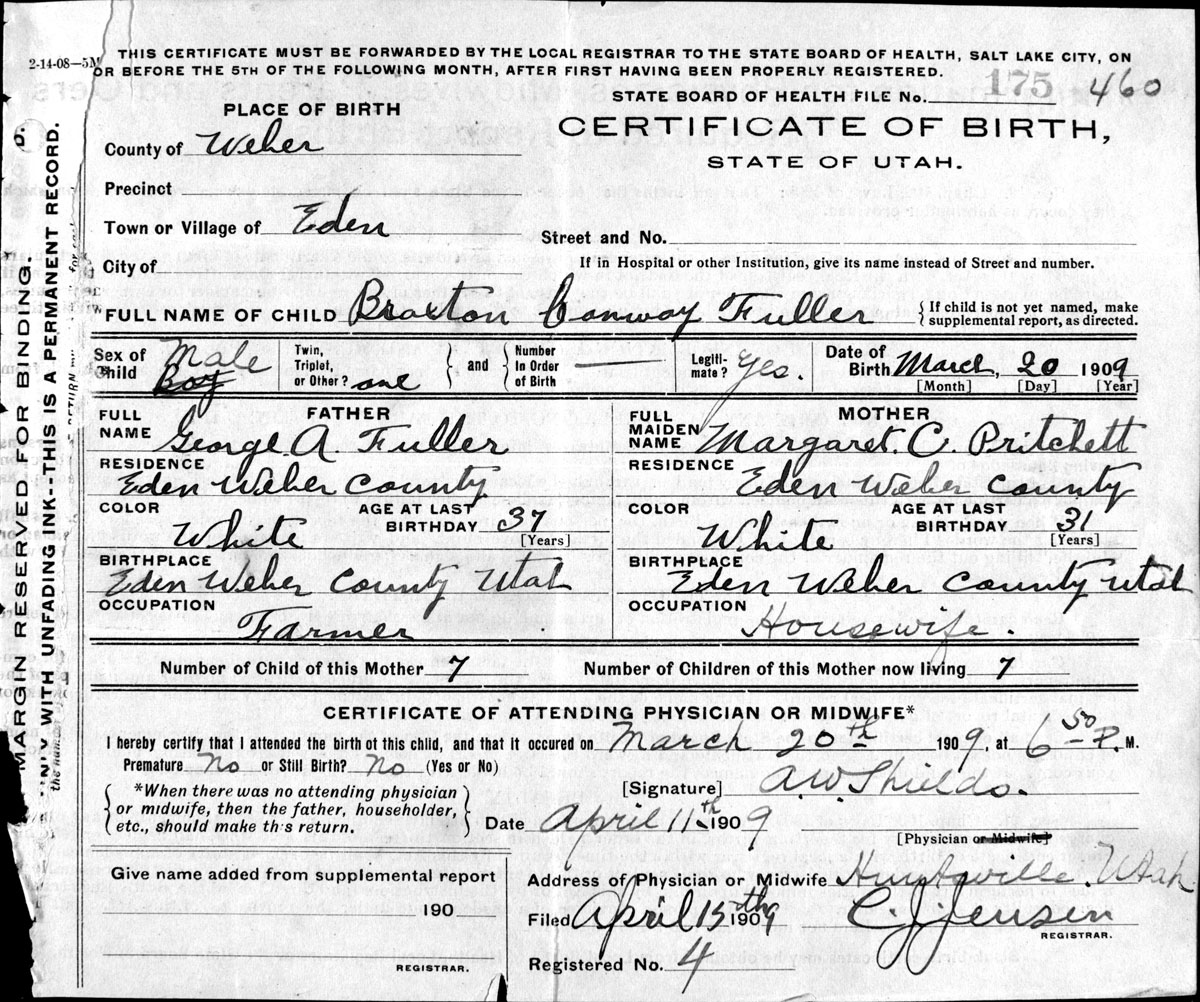 2-14-08—5M
THIS CERTIFICATE MUST BE FORWARDED BY THE LOCAL REGISTRAR TO THE STATE BOARD OF HEALTH, SALT LAKE CITY, ON
OR BEFORE THE 5TH OF THE FOLLOWING MONTH, AFTER FIRST HAVING BEEN PROPERLY REGISTERED.
STATE BOARD OF HEALTH FILE No. 175 - 460
CERTIFICATE OF BIRTH,
STATE OF UTAH.
PLACE OF BIRTH
County of Weber
Precinct
Town or Village of Eden
Street and No.
City of
If in Hospital or other Institution, give its name instead of Street and number.
FULL NAME OF CHILD Braxton Conway Fuller { If child is not yet named, make
supplemental report, as directed.
Sex of Child Male Boy
Twin, Triplet, or Other? one } and { Number In Order of Birth —
Legiti-mate? Yes.
Date of Birth March, 20 1909
[Month] [Day] [Year]
FATHER
FULL NAME George A. Fuller
RESIDENCE
Eden Weber County
COLOR White AGE AT LAST BIRTHDAY 37
[Years]
BIRTHPLACE
Eden Weber County Utah
OCCUPATION
Farmer
MOTHER
FULL MAIDEN NAME Margaret. C. Pritchett
RESIDENCE
Eden Weber County
COLOR White AGE AT LAST BIRTHDAY 31
[Years]
BIRTHPLACE
Eden Weber County Utah
OCCUPATION
Housewife.
Number of Child of this Mother 7 Number of Children of this Mother now living 7
CERTIFICATE OF ATTENDING PHYSICIAN OR MIDWIFE*
I hereby certify that I attended the birth of this child, and that it occured on March 20th 1909, at 6 50 P. M.
Premature No or Still Birth? No (Yes or No)
[Signature] A.W. Shields.
{ *When there was no attending physician
or midwife, then the father, householder,
etc., should make this return. }
Date April 11th 1909
[Physician or Midwife]
Give name added from supplemental report
190
REGISTRAR.
Address of Physician or Midwife Huntsville. Utah
Filed April 15th 1909 C J Jensen
REGISTRAR.
Registered No. 4
MARGIN RESERVED FOR BINDING.
WITH UNFADING INK--THIS IS A PERMANENT RECORD.